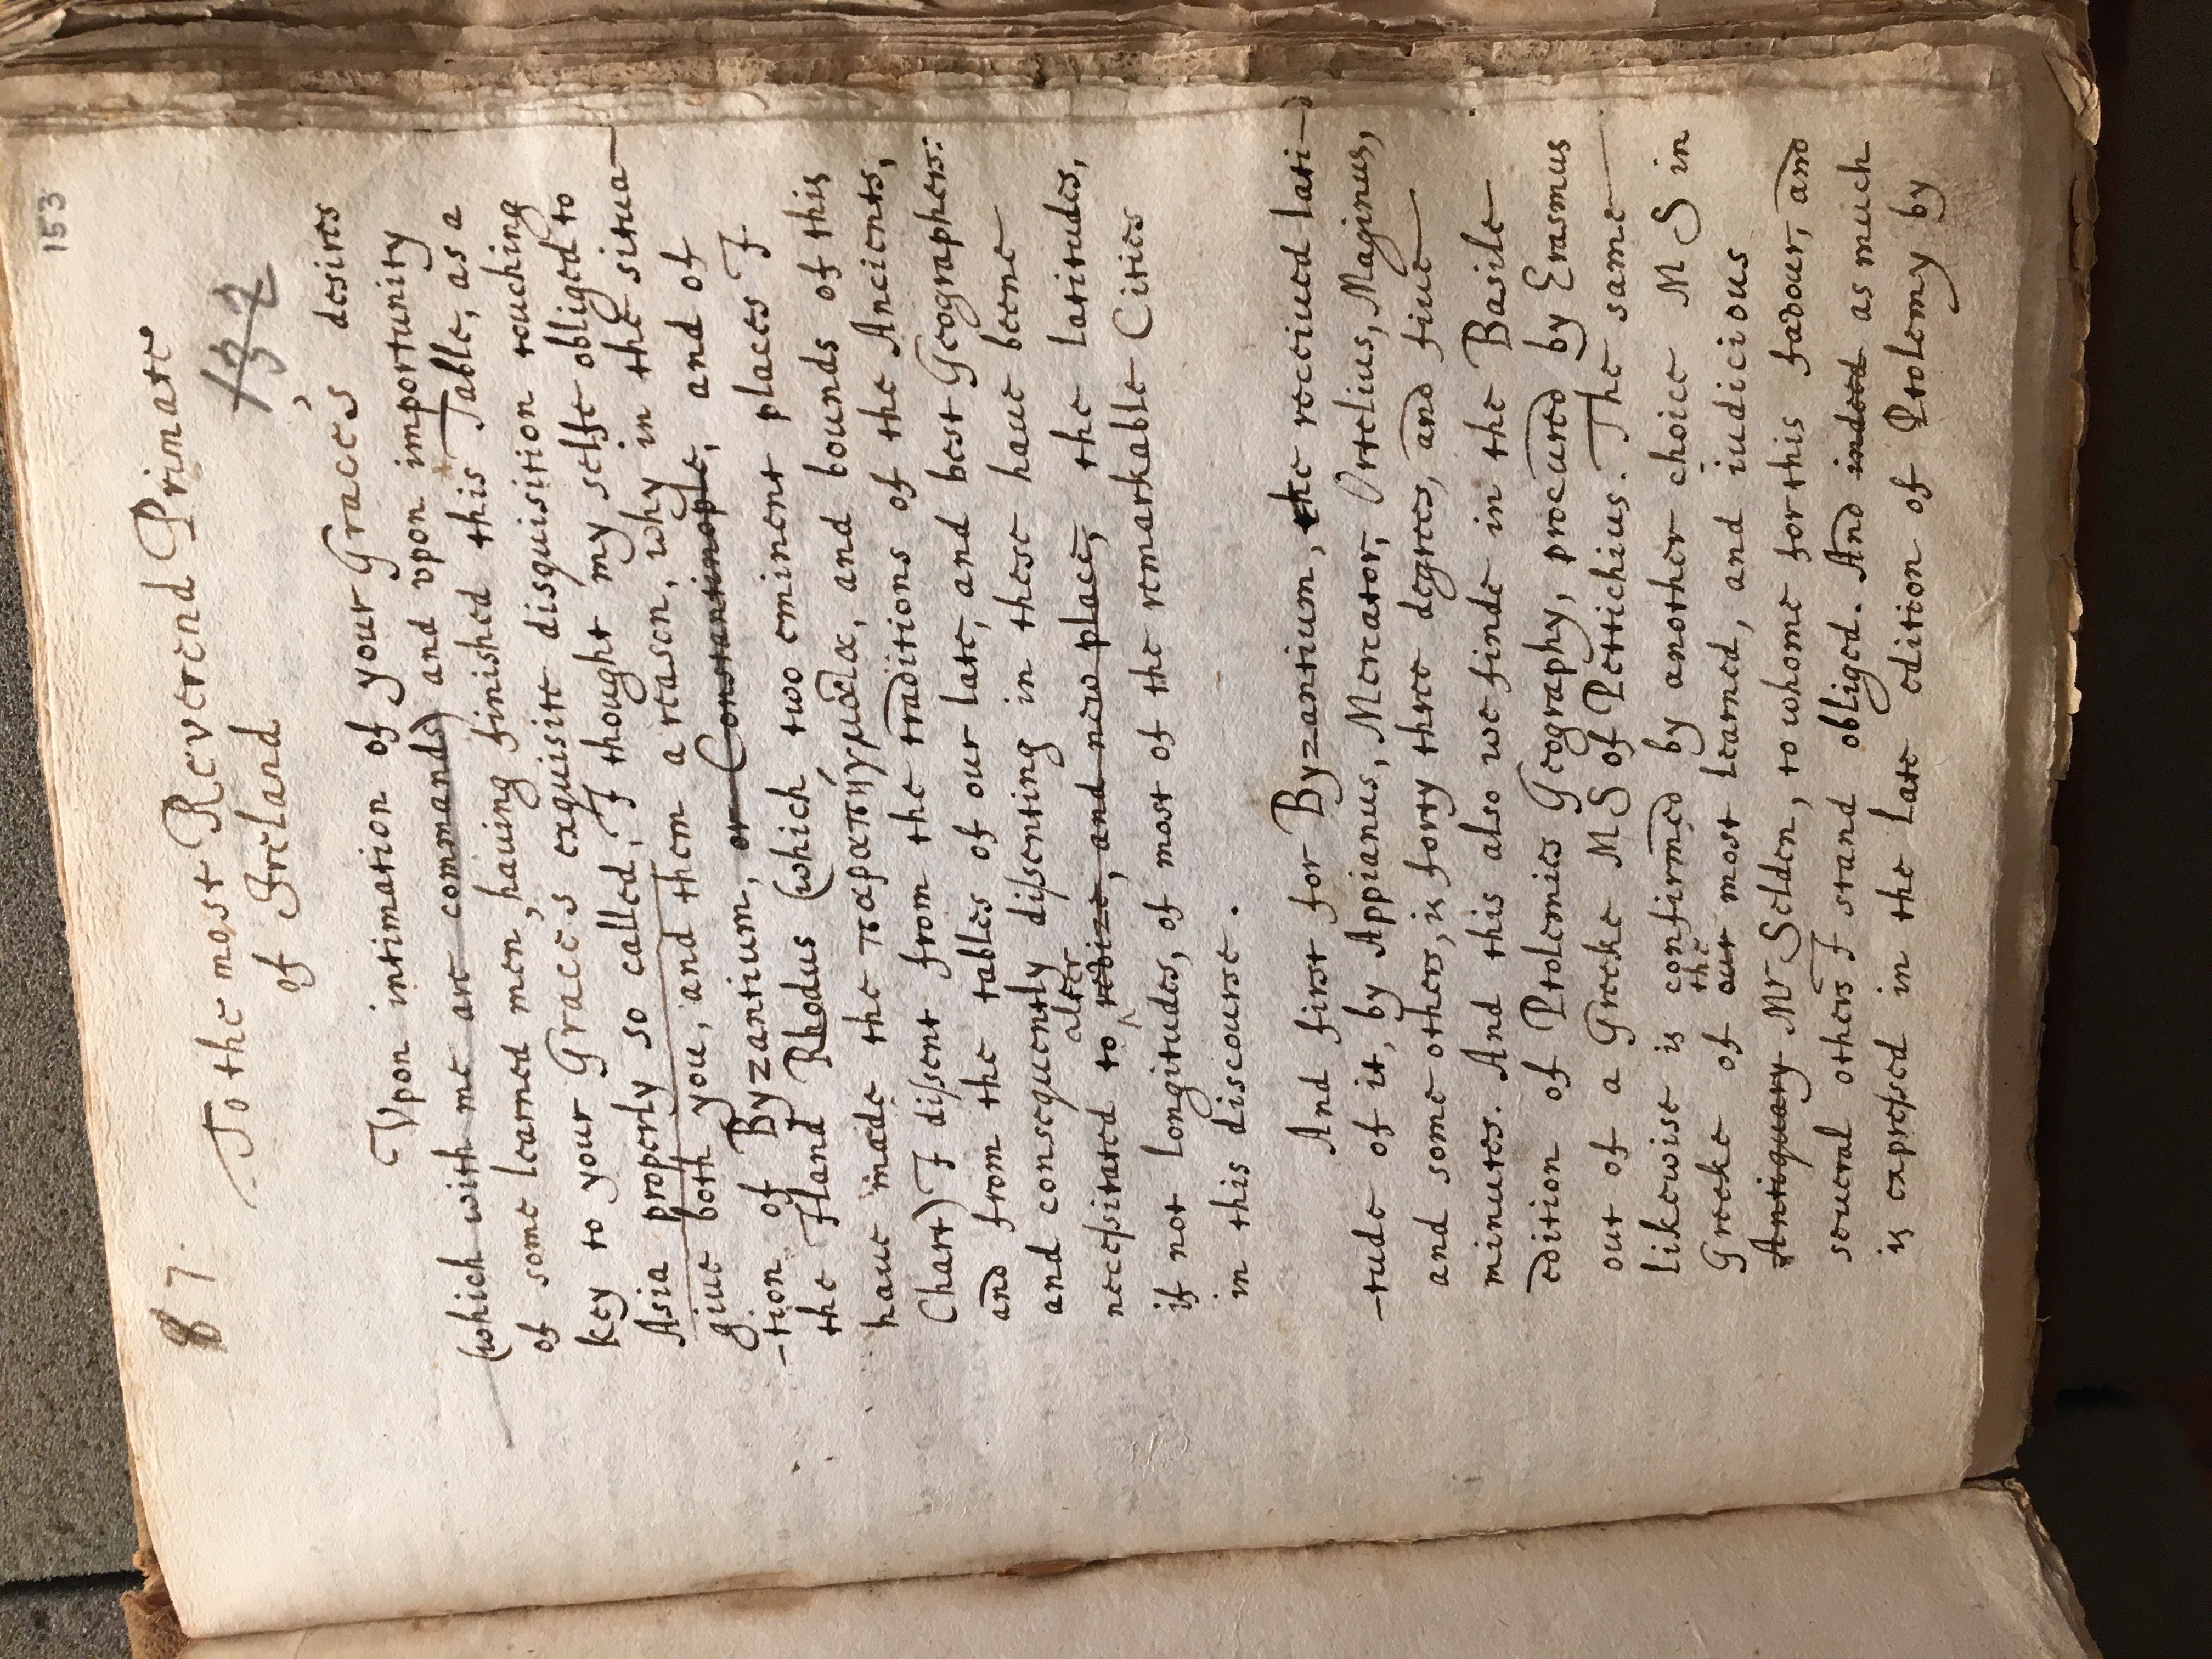 153
87.
To the most Reverend Primate
of Ireland
132
Vpon intimation of your Graces desires
(which with me are commands) and vpon importunity
of some learned men, hauing finished this Table, as a
key to your Graces exquisite disquisition touching
Asia properly so called; I thought my selfe obliged to
giue both you, and them a reason, why in the situa-
-tion of Byzantium, or Constantinople, and of
the Iland Rhodus (which two eminent places I
haue made the παραπήγματα, and bounds of this
Chart) I dissent from the traditions of the Ancients,
and from the tables of our late, and best Geographers:
and consequently dissenting in these haue beene
alter
necessitated to revize, and new place, the latitudes,
if not longitudes, of most of the remarkable Cities
in this discourse.
And first for Byzantium, the receiued lati-
-tude of it, by Appianus, Mercator, Ortelius, Maginus,
and some others, is forty three degrees, and fiue
minutes. And this also we finde in the Basile
edition of Ptolemies Geography, procured by Erasmus
out of a Greeke MS of Pettichius. The same
likewise is confirmed by another choice MS in
the
Greeke of our most learned, and iudicious
Antiquary Mr Selden, to whome for this favour, and
seueral others I stand obliged. And indeed as much
is expressed in the late edition of Ptolemy by